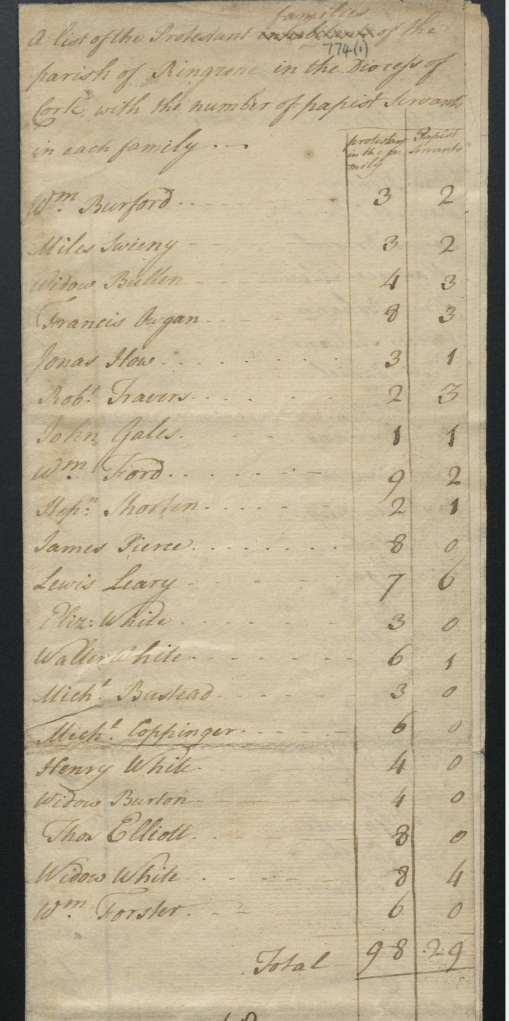 families
A list of the Protestant inhabitants of the
774(1)
parish of Ringrone in the Diocess of
Cork, with the number of papist servants
in each family
protestants in the family Papist servants
Wm. Burford 3 2
Miles Swieny 3 2
Widow Bullen 4 3
Francis Owgan 8 3
Jonas How 3 1
Robt. Travers 2 3
John Gales 1 1
Wm. Ford 9 2
Stepn. Shorten 2 1
James Pierce 8 0
Lewis Leary 7 6
Eliz: White 3 0
Walter White 6 1
Michl. Bustead 3 0
Michl. Coppinger 6 0
Henry White 4 0
Widow Burton 4 0
Thos Elliott 8 0
Widow White 8 4
Wm. Forster 6 0
Total 98 29